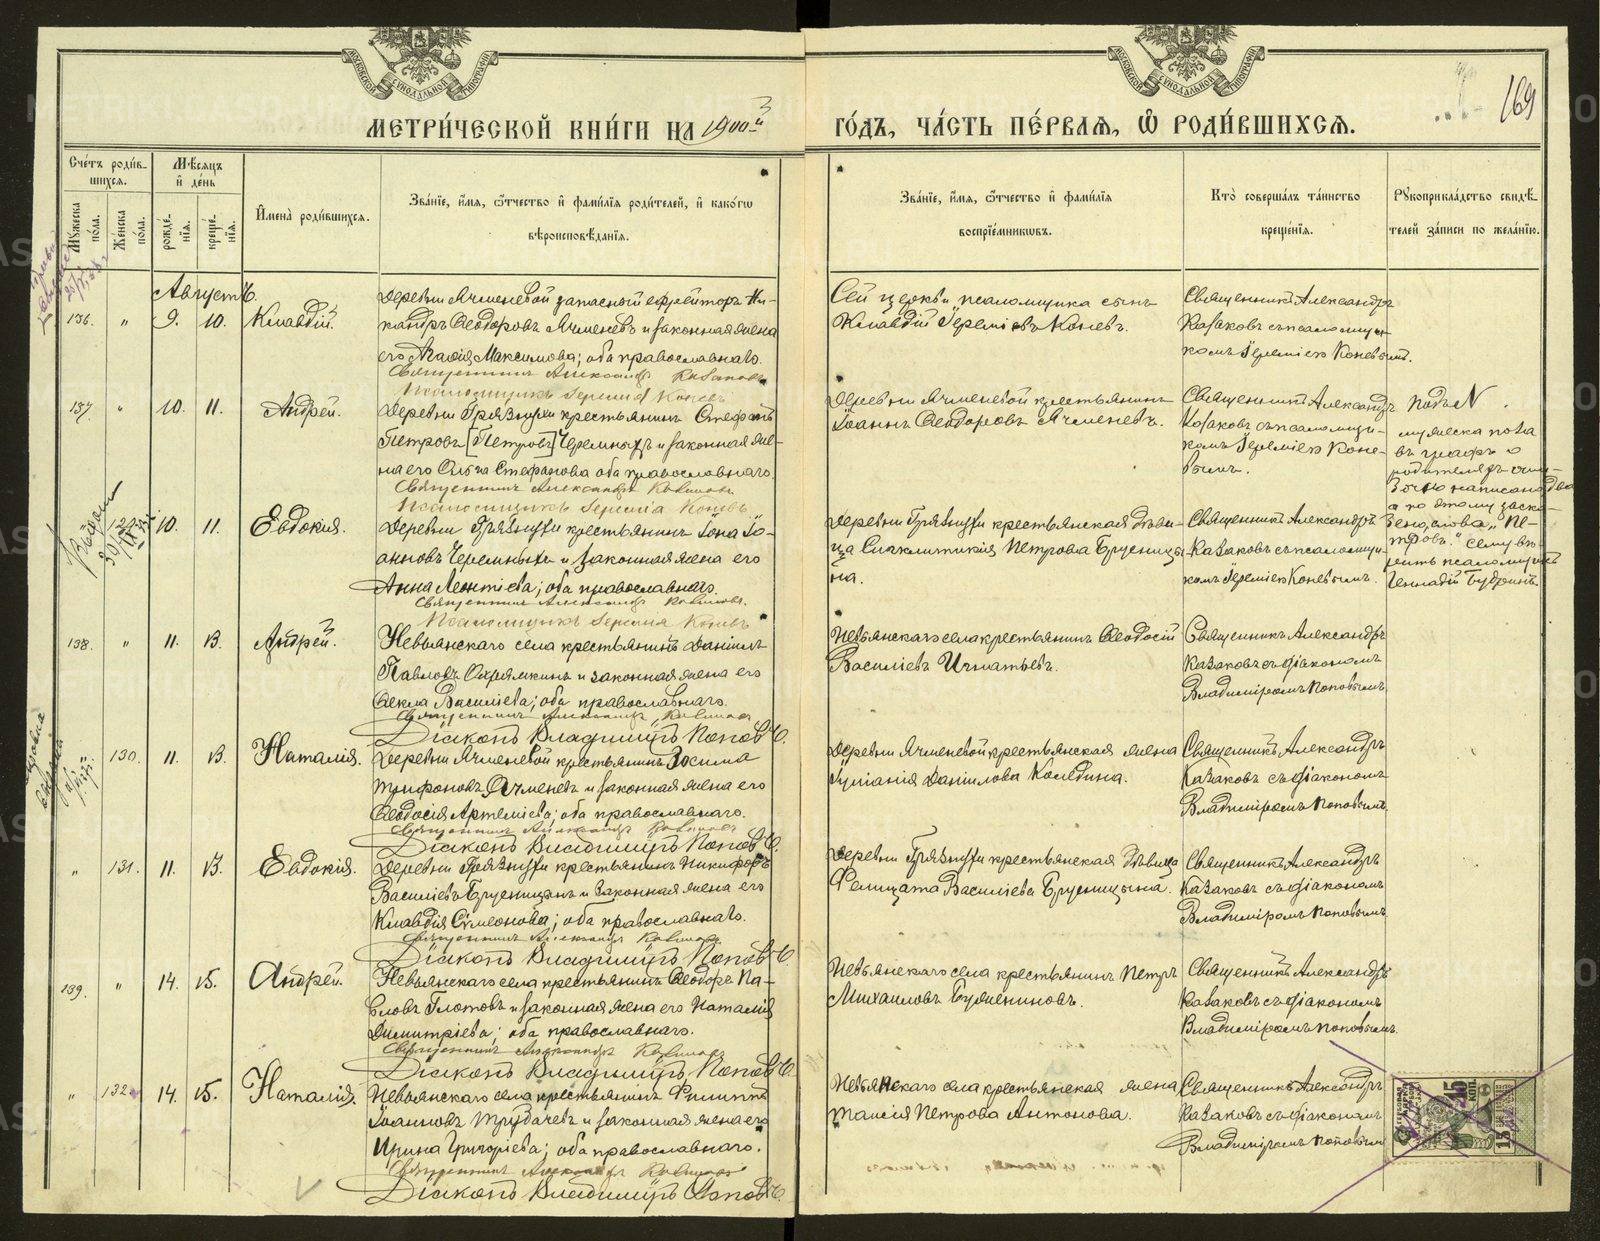 МОСКОВСКОЙ СѴНОДАЛЬНОЙ ТИПОГРАФІИ
МОСКОВСКОЙ СѴНОДАЛЬНОЙ ТИПОГРАФІИ
169
МЕТРИ́ЧЕСКОЙ КНИ́ГИ НА 1903й
ГО́ДЪ, ЧА́СТЬ ПЕ́РВАЯ, Ѽ РОДИ́ВШИХСЯ.
Сче́тъ роди́в-
шихся.
Мѣ́сяцъ
и҆ де́нь
Му́жеска по́ла.
Же́нска по́ла.
рожде́-
нїя.
креще́-
нїя.
И҆мена̀ роди́вшихся.
Зва́нїе, и҆́мя, ѻ҆́тчество и҆ фамѝлїя роди́телей, и҆ како́гѡ
вѣроисповѣ́данїя.
Зва́нїе, и҆́мя, ѻ҆́тчество и҆ фамѝлїя
воспрїе́мникѡвъ.
Кто̀ соверша́лъ та́инство
креще́нїя.
Рꙋкоприкла́дство свидѣ́-
телей за́писи по жела́нїю.
Августъ.
136. " 9. 10. Клавдій.
Деревни Ячменевой запасный ефрейторъ Ни-
кандръ Ѳеодоровъ Ячменевъ и законная жена
его Агаѳія Максимова; оба православнаго.
Священникъ Александръ Казаковъ
Псаломщикъ Іеремія Коневъ
Сей церкви псаломщика сынъ
Клавдій Іереміевъ Коневъ.
Священникъ Александръ
Казаковъ съ псаломщи-
комъ Іереміею Коневымъ.
137. " 10. 11. Андрей.
Деревни Грязнухи крестьянинъ Стефанъ
Петровъ [Петровъ] Черемныхъ и законная же-
на его Ольга Стефанова оба православнаго.
Священникъ Александръ Казаковъ
Псаломщикъ Іеремія Коневъ
Деревни Ячменевой крестьянинъ
Іоаннъ Ѳеодоровъ Ячменевъ.
Священникъ Александръ
Казаковъ съ псаломщи-
комъ Іереміею Коне-
вымъ.
Подъ N
мужеска пола
въ графѣ о
родителяхъ
написано два
а по этому заско-
лова "Пе-
тровъ."
псаломщикъ
Геннадій
10. 11. Евдокія.
Деревни Грязнухи крестьянинъ Іона Іо-
анновъ Черемныхъ и законная жена его
Анна Леонтіева; оба православнаго.
Священникъ Александръ Казаковъ
Псаломщикъ Іеремія Коневъ
Деревни Грязнухи крестьянская дѣви-
ца Гликлитикія Петрова Брусницы-
на.
Священникъ Александръ
Казаковъ съ псаломщи-
комъ Іереміею Коневымъ.
138. " 11. 13. Андрей.
Невьянскаго села крестьянинъ Даніилъ
Павловъ Охрямкинъ и законная жена его
Ѳекла Василіева; оба православнаго.
Священникъ Александръ Казаковъ
Діаконъ Владиміръ Поповъ
Невьянскаго села крестьянинъ Ѳеодосій
Василіевъ Игнатьевъ.
Священникъ Александръ
Казаковъ съ діакономъ
Владиміромъ Поповымъ.
130. 11. 13. Наталія.
Деревни Ячменевой крестьянинъ Зосима
Трифоновъ Ячменевъ и законная жена его
Ѳеодосія Артеміева; оба православнаго.
Священникъ Александръ Казаковъ
Діаконъ Владиміръ Поповъ
Деревни Ячменевой крестьянская жена
Іуліанія Даніилова Коледина.
Священникъ Александръ
Казаковъ съ діакономъ
Владиміромъ Поповымъ.
" 131. 11. 13. Евдокія.
Деревни Грязнухи крестьянинъ Никифоръ
Василіевъ Брусницынъ и законная жена его
Клавдія Симеонова; оба православнаго.
Священникъ Александръ Казаковъ
Діаконъ Владиміръ Поповъ
Деревни Грязнухи крестьянская дѣвица
Фелицата Василіева Брусницына.
Священникъ Александръ
Казаковъ съ діакономъ
Владиміромъ Поповымъ.
139. " 14. 15. Андрей.
Невьянскаго села крестьянинъ Ѳеодоръ Па-
вловъ Глотовъ и законная жена его Наталія
Димитріева; оба православнаго.
Священникъ Александръ Казаковъ
Діаконъ Владиміръ Поповъ
Невьянскаго села крестьянинъ Петръ
Михаиловъ Бужениновъ.
Священникъ Александръ
Казаковъ съ діакономъ
Владиміромъ Поповымъ.
" 132. 14. 15. Наталія.
Невьянскаго села крестьянинъ Филиппъ
Іоанновъ Трубачевъ и законная жена его
Ирина Григоріева; оба православнаго.
Священникъ Александръ Казаковъ
Діаконъ Владиміръ Поповъ
Невьянскаго села крестьянская жена
Таисія Петрова Антонова.
Священникъ Александръ
Казаковъ съ діакономъ
Владиміромъ Поповымъ
15 КОП.